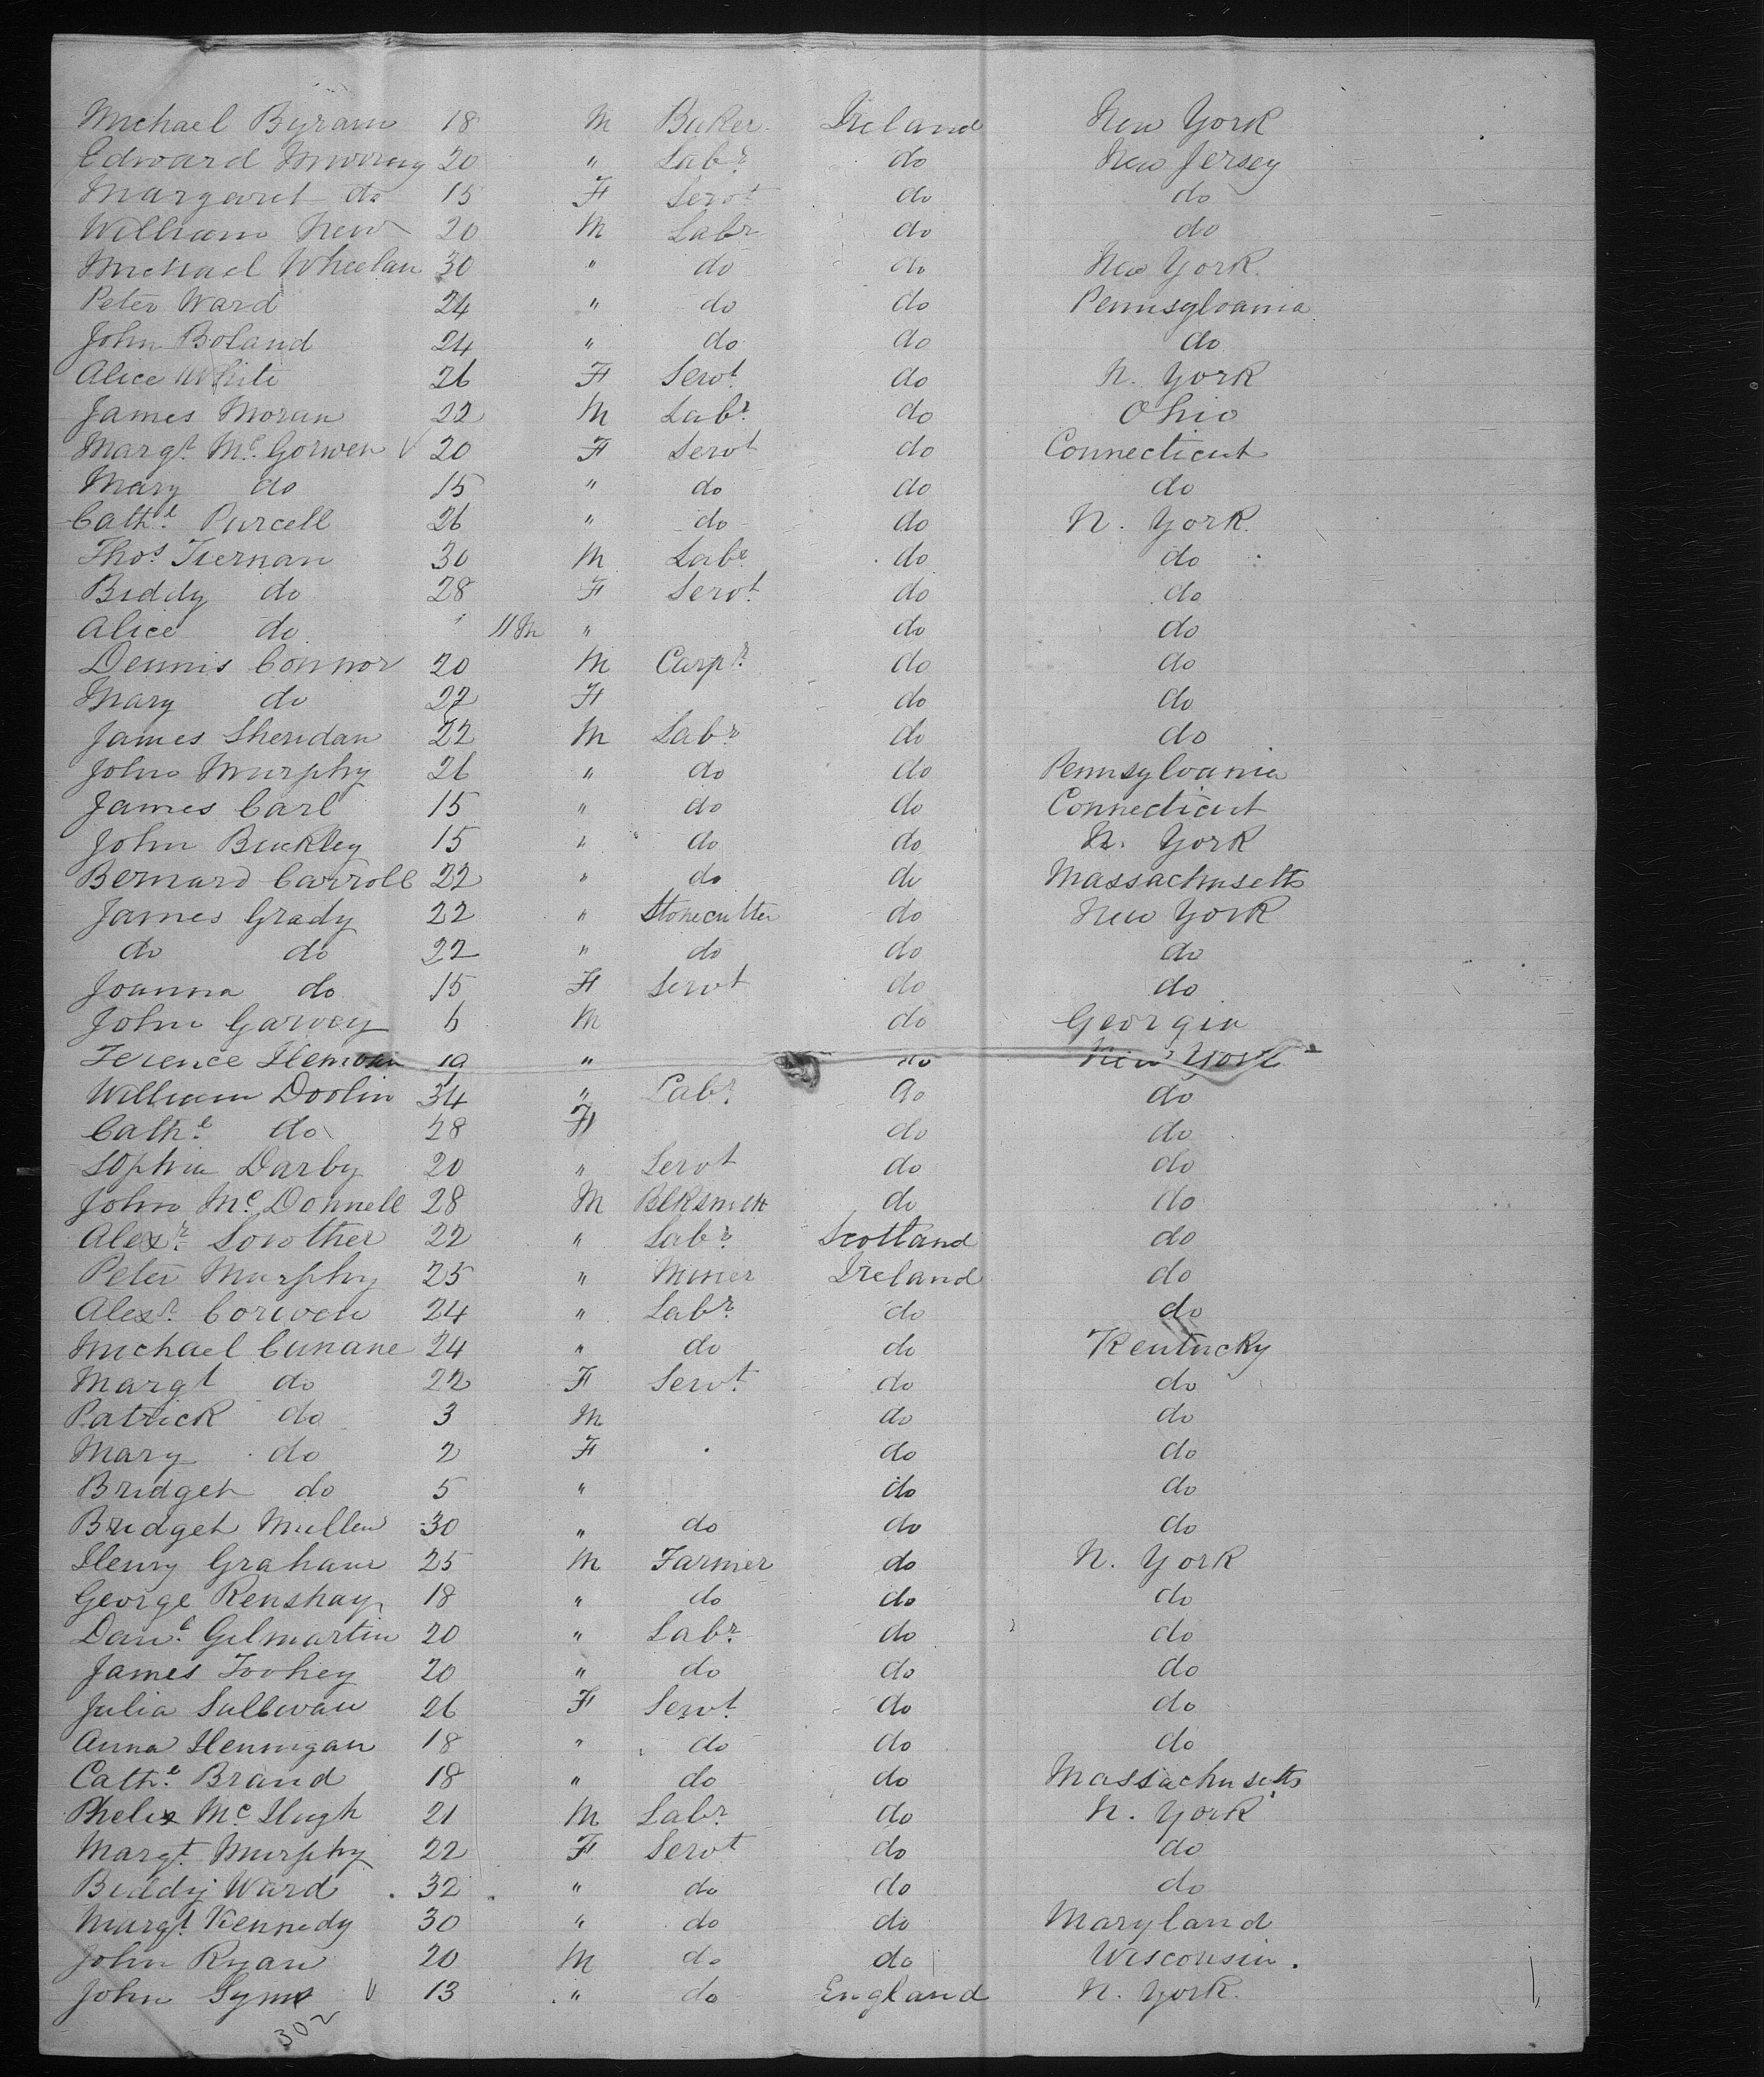 Michael Byram 18 M Baker Ireland New York
Edward 20 " Labr. do New Jersey
Margaret do 15 F Servt do do
William New 20 M Labr do do
Michael Wheelan 30 " do do New York.
Peter Ward 24 " do do Pennsylvania
John Boland 24 " do do do
Alice White 26 F Servt. do N. York
James Moran 22 M Labr. do Ohio
Margt. Mc. Gorwen √ 20 F Servt do Connecticut
Mary do 15 " do do do
Cathe. Purcell 26 " do do N. York.
Thos. Tiernan 30 M Labr. do do
Biddy do 28 F Servt. do do
Alice do 11 M " do do
Dennis Connor 20 M Carpr. do do
Mary do 22 F do do
James Sheridan 22 M Labr. do do
John Murphy 26 " do do Pennsylvania
James Carl 15 " do do Connecticut
John Buckley 15 " do do N. York
Bernard Carroll 22 " do do Massachusetts
James Grady 22 " Stonecutter do New York
do do 22 " do do do
Joanna do 15 F Servt do do
John Garvey 6 M do Georgia
Terence " do New York
William Doolin 34 " Labr. do do
Cathe. do 28 F do do
Sophia Darby 20 " Servt do do
John Mc. Donnell 28 M Blksmith do do
Alexr. Lowther 22 " Labr. Scotland do
Peter Murphy 25 " Miner Ireland do
Alexr. Corwen 24 " Labr. do do
Michael Cunane 24 " do do Kentucky
Margt do 22 F Servt. do do
Patrick do 3 M do do
Mary do 2 F do do
Bridget do 5 " do do
Bridget Mullen 30 " do do do
Henry Graham 25 M Farmer do N. York
George Renshay 18 " do do do
Danl. Gilmartin 20 " Labr. do do
James Toohey 20 " do do do
Julia Sullivan 26 F Servt. do do
Anna Hennigan 18 " do do do
Cathe. Brand 18 " do do Massachusetts
Phelix Mc. Hugh 21 M Labr. do N. York
Margt. Murphy 22 F Servt do do
Biddy Ward 32 " do do do
Margt. Kennedy 30 " do do Maryland
John Ryan 20 M do do Wisconsin.
John Syms √ 13 " do England N. York.
302